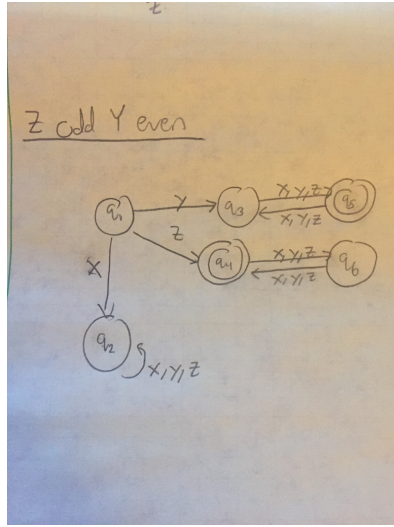 Z odd Y even
q1
Y
q3
X,Y,Z
X,Y,Z
q5
Z
q4
X,Y,Z
X,Y,Z
q6
X
q2
X,Y,Z